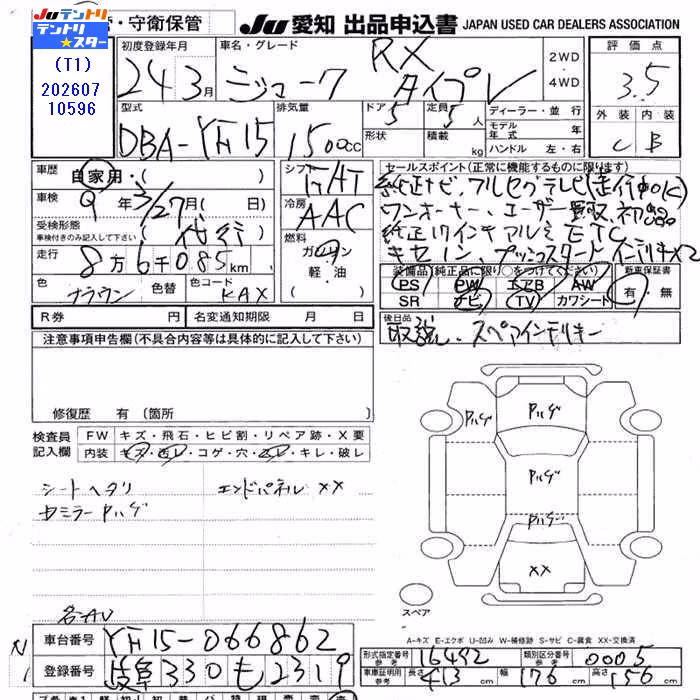 Ju テントリ
テントリ★スター
(T1)
202607
10596
・守衛保管
Ju 愛知 出品申込書 JAPAN USED CAR DEALERS ASSOCIATION
初度登録年月 24 3月
車名・グレード ジューク RX タイプV
2WD・4WD
評価点 3.5
外装 C 内装 B
型式 DBA-YF15
排気量 1500cc
ドア 5 形状
定員 5人 積載 kg
ディーラー・並行
モデル年式 年
ハンドル 左・右
車歴 自家用・( )
車検 9年3/27月(日)
受検形態 車検付きのみ記入して下さい (代行)
走行 8万6千085km
色 ブラウン 色替 色コード KAX
シフト FAT
冷房 AAC
燃料 ガソリン 軽・油
セールスポイント(正常に機能するものに限ります)
純正ナビ、フルセグテレビ(走行中OK)
ワンオーナー、エーザー買取、初出品
純正17インチアルミ ETC
キセノン、プッシュスタート インテリキ×2
装備品 (純正品に限り○をつけてください) 新車保証書
PS PW エアB AW 有・無
SR ナビ TV カワシート
R券 円 名変通知期限 月 日
後日品 取説、スペアインテリキー
注意事項申告欄(不具合内容等は具体的に記入して下さい)
修復歴 有(箇所
検査員記入欄 FW キズ・飛石・ヒビ割・リペア跡・X要
内装 キズ・汚レ・コゲ・穴・スレ・キレ・破レ
シートヘタリ エンドパネル XX
セミラー Pハゲ
Pハゲ Pハゲ
Pハゲ
Pハゲ
XX
スペア
A-キズ E-エクボ U-凹み W-補修跡 S-サビ C-腐食 XX-交換済
車台番号 YF15-066862
登録番号 岐阜330も2319
形式指定番号 参考 16492 類別区分番号 参考 0005
車庫証明用 参考 長さ 413 cm 幅 176 cm 高さ 156 cm